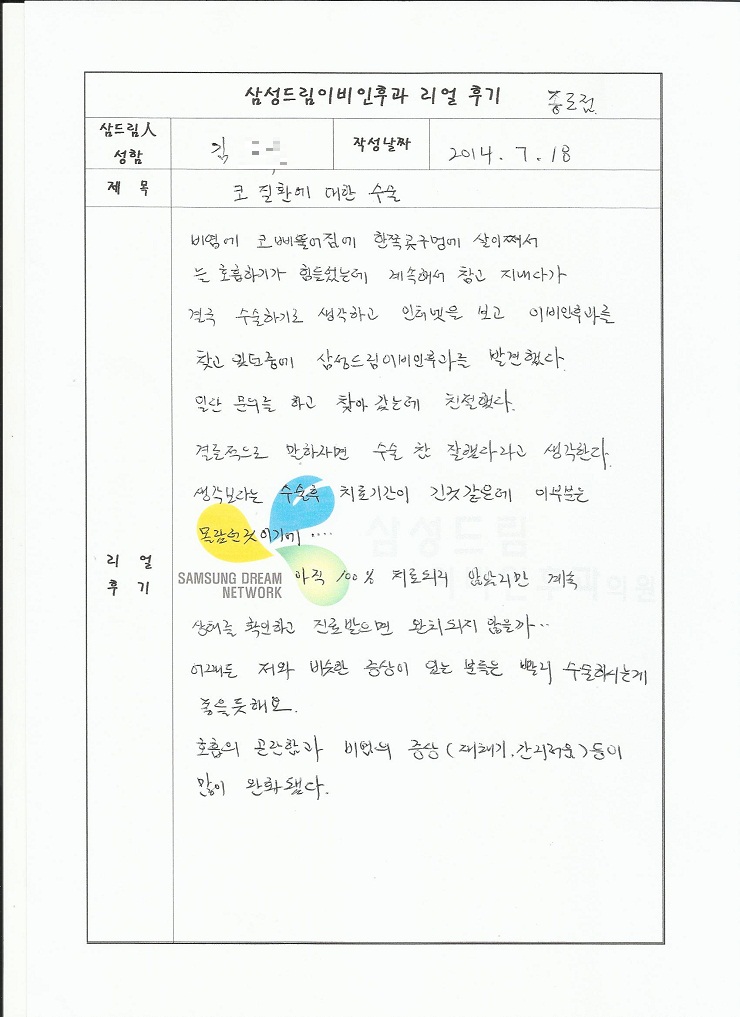 삼성드림이비인후과 리얼 후기 종로점
삼드림人 성함 김 작성날짜 2014. 7. 18
제 목 코 질환에 대한 수술
비염에 코삐뚤어짐에 한쪽콧구멍에 살이쪄서
는 호흡하기가 힘들었는데 계속해서 참고 지내다가
결국 수술하기로 생각하고 인터넷을 보고 이비인후과를
찾고 있던중에 삼성드림이비인후과를 발견했다.
일단 문의를 하고 찾아 갔는데 친절했다.
결론적으로 말하자면 수술 참 잘했다라고 생각한다.
생각보다는 수술후 치료기간이 긴것같은데 이부분은
몰랐던것이기에 ....
리 얼 후 기
삼성드림
이비인후과의원
SAMSUNG DREAM
NETWORK
아직 100% 치료되지 않았지만 계속
상태를 확인하고 진료받으면 완치되지 않을까..
어쨌든 저와 비슷한 증상이 있는 분들은 빨리 수술하시는게
좋을듯해요.
호흡의 곤란함과 비염의 증상(재채기, 간지러움)등이
많이 완화됐다.